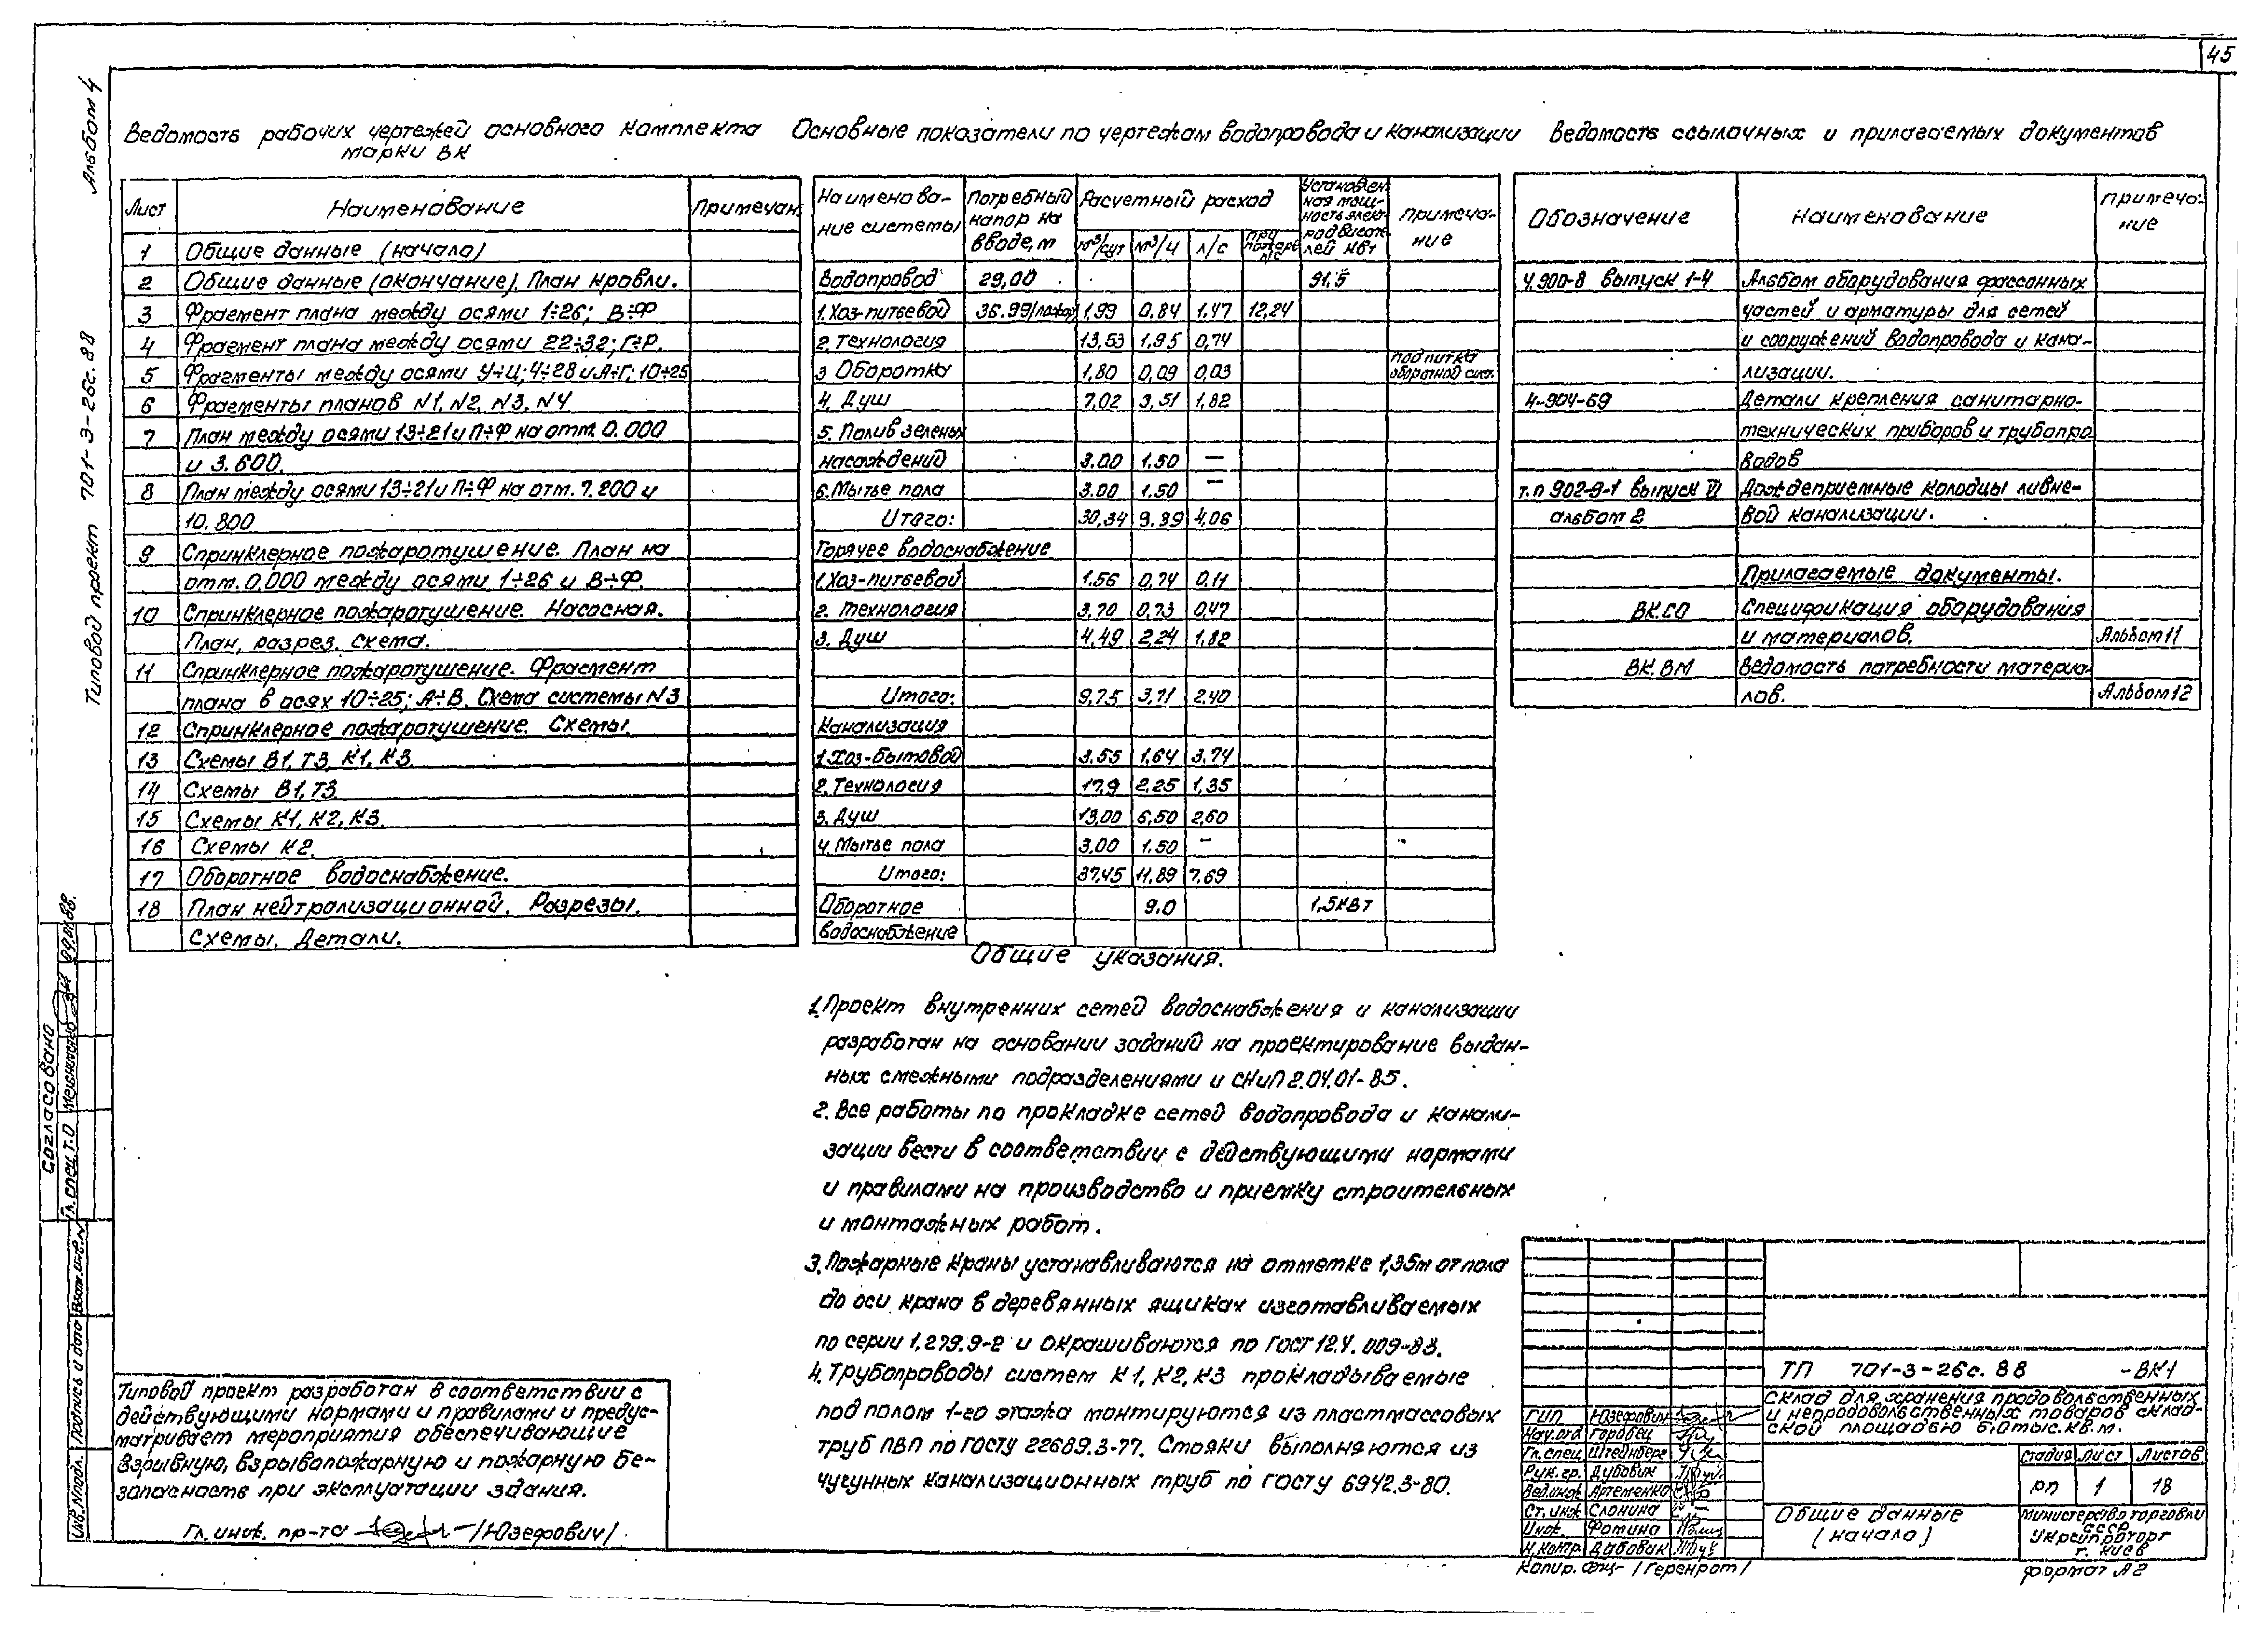 45
Альбом 4
Типовой проект 701-3-26с.88
Ведомость рабочих чертежей основного комплекта
марки ВК
Лист Наименование Примечан.
1 Общие данные (начало)
2 Общие данные (окончание). План кровли.
3 Фрагмент плана между осями 1÷26; В÷Ф
4 Фрагмент плана между осями 22÷32; Г÷Р.
5 Фрагменты между осями У÷Ц; 4÷28 и А÷Г; 10÷25
6 Фрагменты планов N1, N2, N3, N4
7 План между осями 13÷21 и П÷Ф на отм. 0.000
и 3.600.
8 План между осями 13÷21 и П÷Ф на отм. 7.200 и
10.800
9 Спринклерное пожаротушение. План на
отм. 0.000 между осями 1÷26 и В÷Ф.
10 Спринклерное пожаротушение. Насосная.
План, разрез, схема.
11 Спринклерное пожаротушение. Фрагмент
плана в осях 10÷25; А÷В. Схема системы N3
12 Спринклерное пожаротушение. Схемы.
13 Схемы В1, Т3, К1, К3
14 Схемы В1, Т3
15 Схемы К1, К2, К3.
16 Схемы К2.
17 Оборотное водоснабжение.
18 План нейтрализационной. Разрезы.
Схемы. Детали.
Основные показатели по чертежам водопровода и канализации
Наименова-
ние системы
Потребный
напор на
вводе, м
Расчетный расход
м³/сут м³/ч л/с при пожаре л/с
Установлен
ная мощ-
ность элек-
родвигате
лей кВт
Примеча-
ние
Водопровод 29,00 91.5
1. Хоз-питьевой 36.99/пожар 1,99 0,84 1,47 12,24
2. Технология 13,53 1,95 0,74
3 Оборотка 1,80 0,09 0,03 подпитка
оборотной сист.
4. Душ 7,02 3,51 1,82
5. Полив зеленых
насаждений 3.00 1.50 —
6. Мытье пола 3.00 1.50 —
Итого: 30,34 9.39 4,06
Горячее водоснабжение
1. Хоз-питьевой 1.56 0,74 0,11
2. Технология 3,70 0,73 0,47
3. Душ 4,49 2.24 1,82
Итого: 9,75 3,71 2,40
Канализация
1. Хоз-бытовой 3.55 1,64 3,74
2. Технология 17,9 2,25 1,35
3. Душ 13,00 6,50 2,60
4. Мытье пола 3,00 1.50 —
Итого: 37,45 11,89 7,69
Оборотное 9.0 1,5кВт
водоснабжение
Ведомость ссылочных и прилагаемых документов
Обозначение Наименование Примеча-
ние
4.900-8 выпуск 1-4 Альбом оборудования фассонных
частей и арматуры для сетей
и сооружений водопровода и кана-
лизации.
4-904-69 Детали крепления санитарно-
технических приборов и трубопро
водов
т.п 902-9-1 выпуск VI Дождеприемные колодцы ливне-
альбом 2 вой канализации.
Прилагаемые документы.
ВК.СО Спецификация оборудования
и материалов. Альбом 11
ВК.ВМ Ведомость потребности материа-
лов. Альбом 12
Общие указания.
1. Проект внутренних сетей водоснабжения и канализации
разработан на основании заданий на проектирование выдан-
ных смежными подразделениями и СНиП 2.04.01-85.
2. Все работы по прокладке сетей водопровода и канали-
зации вести в соответствии с действующими нормами
и правилами на производство и приемку строительных
и монтажных работ.
3. Пожарные краны устанавливаются на отметке 1,35м от пола
до оси крана в деревянных ящиках изготавливаемых
по серии 1.279.9-2 и окрашиваются по ГОСТ 12.4.009-83.
4. Трубопроводы систем К1, К2, К3 прокладываемые
под полом 1-го этажа монтируются из пластмассовых
труб ПВП по ГОСТу 22689.3-77. Стояки выполняются из
чугунных канализационных труб по ГОСТу 6942.3-80.
Типовой проект разработан в соответствии с
действующими нормами и правилами и предус-
матривает мероприятия обеспечивающие
взрывную, взрывопожарную и пожарную бе-
запасность при эксплуатации здания.
Гл. инж. пр-та /Юзефович/
Согласовано
Гл. спец. Т.О
09.88.
Инв. N подл. Подпись и дата Взам. инв. N
ТП 701-3-26с.88 -ВК1
Склад для хранения продовольственных
и непродовольственных товаров склад-
ской площадью 6.0 тыс. кв. м.
ГИП Юзефович
Нач. отд Горовец
Гл. спец Штейнберг
Рук. гр. Дубовик
Вед. инж Артеменко
Ст. инж Слонина
Инж. Фомина
Н. контр. Дубовик
Стадия Лист Листов
РП 1 18
Общие данные
(начало)
Министерство торговли
СССР
Укргипроторг
г. Киев
Копир. /Геренрот/
Формат А2